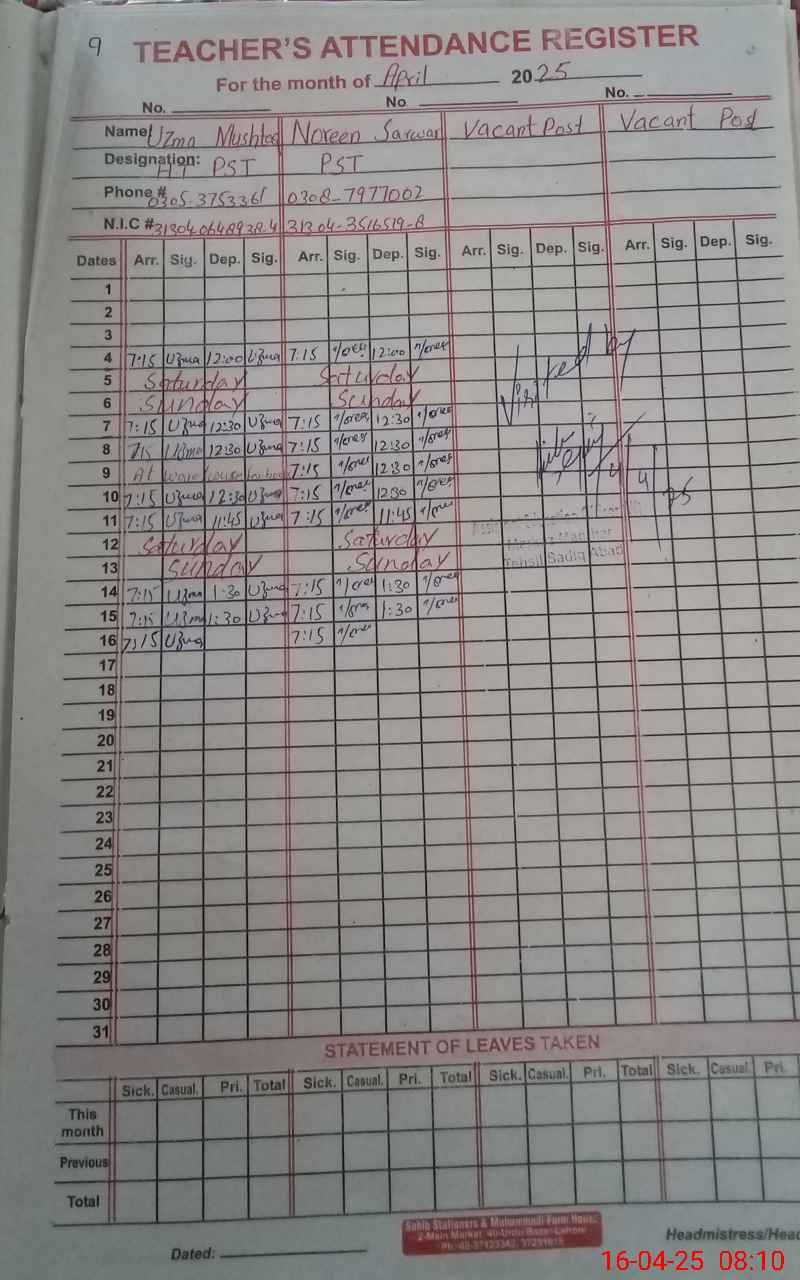 9
TEACHER'S ATTENDANCE REGISTER
For the month of April 2025
No. No No.
Name Uzma Mushtaq Noreen Sarwar Vacant Post Vacant Post
Designation: HT PST PST
Phone # 0305-3753361 0308-7977002
N.I.C # 31304-0648938-4 31304-3516519-8
Dates Arr. Sig. Dep. Sig. Arr. Sig. Dep. Sig. Arr. Sig. Dep. Sig. Arr. Sig. Dep. Sig.
1
2
3
4 7:15 Uzma 12:00 Uzma 7:15 12:00
5 Saturday Saturday
6 Sunday Sunday
7 7:15 Uzma 12:30 Uzma 7:15 12:30
8 7:15 Uzma 12:30 Uzma 7:15 12:30
9 At 7:15 12:30
10 7:15 Uzma 12:30 Uzma 7:15 12:30
11 7:15 Uzma 11:45 Uzma 7:15 11:45
12 Saturday Saturday
13 Sunday Sunday
14 7:15 Uzma 1:30 Uzma 7:15 1:30
15 7:15 Uzma 1:30 Uzma 7:15 1:30
16 7:15 Uzma 7:15
Visited by
4 4 25
Tehsil Sadiq Abad
17
18
19
20
21
22
23
24
25
26
27
28
29
30
31
STATEMENT OF LEAVES TAKEN
Sick. Casual. Pri. Total Sick. Casual. Pri. Total Sick. Casual. Pri. Total Sick. Casual. Pri.
This month
Previous
Total
Sahib Stationers & Muhammadi Form House
2-Main Market, 40-Urdu Bazar Lahore
Dated: Headmistress/Head
16-04-25 08:10